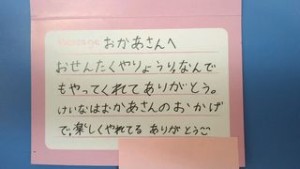 おかあさんへ
おせんたくやりょうりなんで
もやってくれてありがとう。
けいなはおかあさんのおかげ
で。楽しくやれてる ありがとう